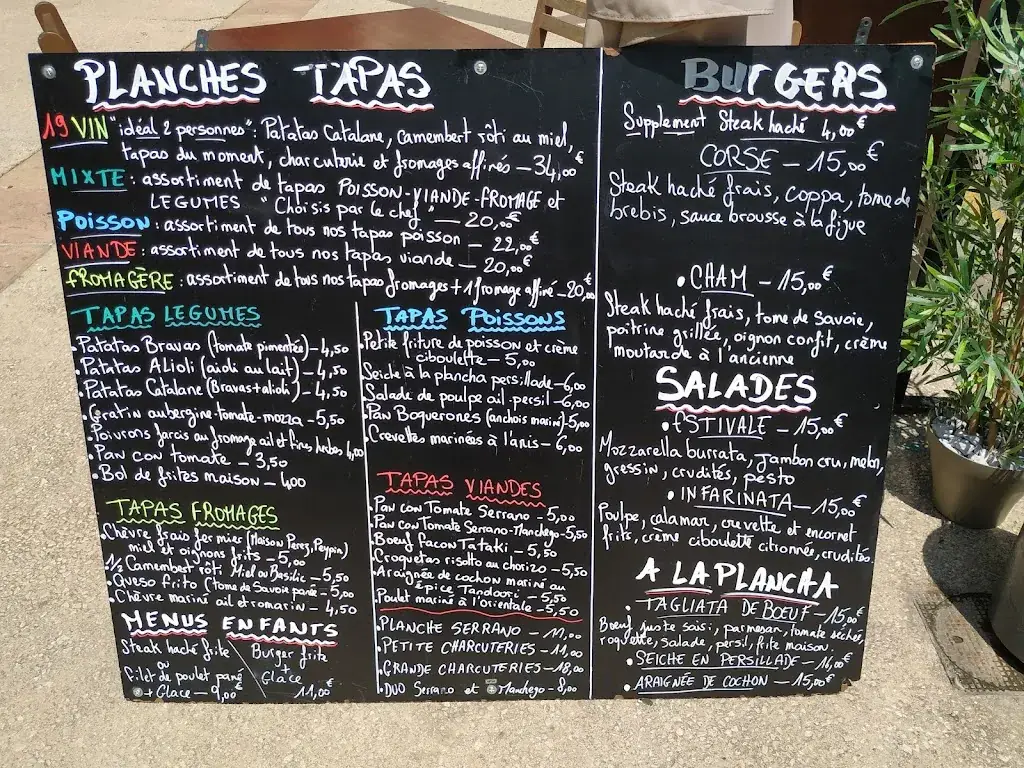 PLANCHES TAPAS
19 VIN "idéal 2 personnes": Patatas Catalane, Camembert rôti au miel,
tapas du moment, charcuterie et fromages affinés - 34,00€
MIXTE : assortiment de tapas POISSON-VIANDE-FROMAGE et
LEGUMES "Choisis par le chef" - 20,00€
POISSON : assortiment de tous nos tapas poisson - 22,00€
VIANDE : assortiment de tous nos tapas viande - 20,00€
FROMAGÈRE : assortiment de tous nos tapas fromages + 1 fromage affiné - 20,00€
TAPAS LEGUMES
• Patatas Bravas (tomate pimentée) - 4,50
• Patatas Alioli (aioli au lait) - 4,50
• Patatas Catalane (Bravas + alioli) - 4,50
• Gratin aubergine-tomate-mozza - 5,50
• Poivrons farcis au fromage ail et fines herbes 4,00
• Pan con tomate - 3,50
• Bol de frites maison - 4,00
TAPAS FROMAGES
• Chèvre frais fermier (Maison Perez, Peypin)
miel et oignons frits - 5,00
• 1/2 Camembert rôti Miel ou Basilic - 5,50
• Queso frito (tome de Savoie panée - 5,00
• Chèvre mariné ail et romarin - 4,50
MENUS ENFANTS
Steak haché frite
ou
Filet de poulet pané
+ Glace - 9,00€
Burger frite
+
Glace
11,00€
TAPAS POISSONS
• Petite friture de poisson et crème
ciboulette - 5,00
Seiche à la plancha persillade - 6,00
• Salade de poulpe ail-persil - 6,00
• Pan Boquerones (anchois mariné) - 5,00
• Crevettes marinées à l'anis - 6,00
TAPAS VIANDES
• Pan con Tomate Serrano - 5,00
• Pan con Tomate Serrano-Manchego - 5,50
• Boeuf façon Tataki - 5,50
• Croquetas risotto au chorizo - 5,50
• Araignée de cochon mariné au
épice Tandoori - 5,50
• Poulet mariné à l'orientale - 5,50
• PLANCHE SERRANO - 11,00
• PETITE CHARCUTERIES - 11,00
• GRANDE CHARCUTERIES - 18,00
• DUO Serrano et Manchego - 8,00
BURGERS
Supplement Steak haché 4,00€
CORSE - 15,00€
Steak haché frais, coppa, tome de
brebis, sauce brousse à la figue
• CHAM - 15,00€
Steak haché frais, tome de Savoie,
poitrine grillée, oignon confit, crème
moutarde à l'ancienne
SALADES
• ESTIVALE - 15,00€
Mozzarella burrata, jambon cru, melon,
gressin, crudités, pesto
• INFARINATA - 15,00€
Poulpe, calamar, crevette et encornet
frits, crème ciboulette citronnée, crudités.
A LA PLANCHA
• TAGLIATA DE BOEUF - 15,00€
Boeuf juste saisi, parmesan, tomate séchée,
roquette, salade, persil, frite maison.
• SEICHE EN PERSILLADE - 16,00€
• ARAIGNÉE DE COCHON - 15,00€